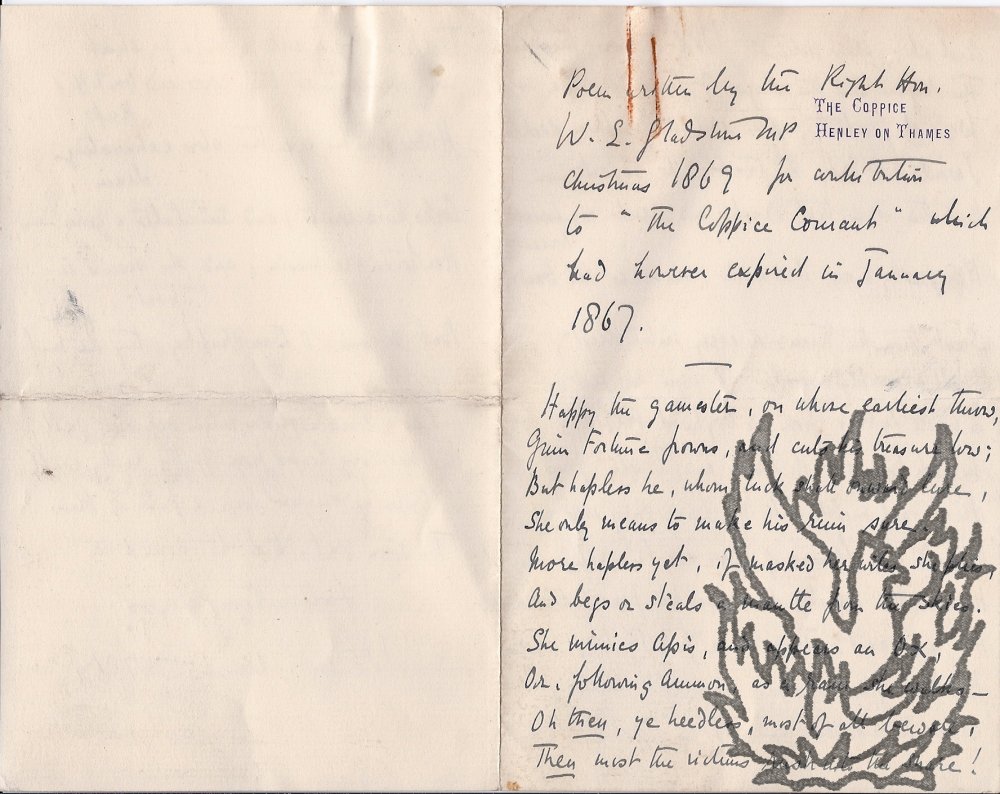 Poem written by the Right Hon.
THE COPPICE
HENLEY ON THAMES
W. E. Gladstone MP
Christmas 1869 for contribution
to "The Coppice Courant" which
had however expired in January
1867.
Happy the gamester, on whose earliest throw,
Grim Fortune frowns, and cuts his treasure low;
But hapless he, whom luck shall onward lure,
She only means to make his ruin sure.
More hapless yet, if masked her wiles she plies,
And begs or steals a mantle from the skies.
She mimics Apis, and appears an Ox,
Or, following Ammon, as a ram she walks—
Oh then, ye heedless, most of all beware,
Then most the victims the snare!